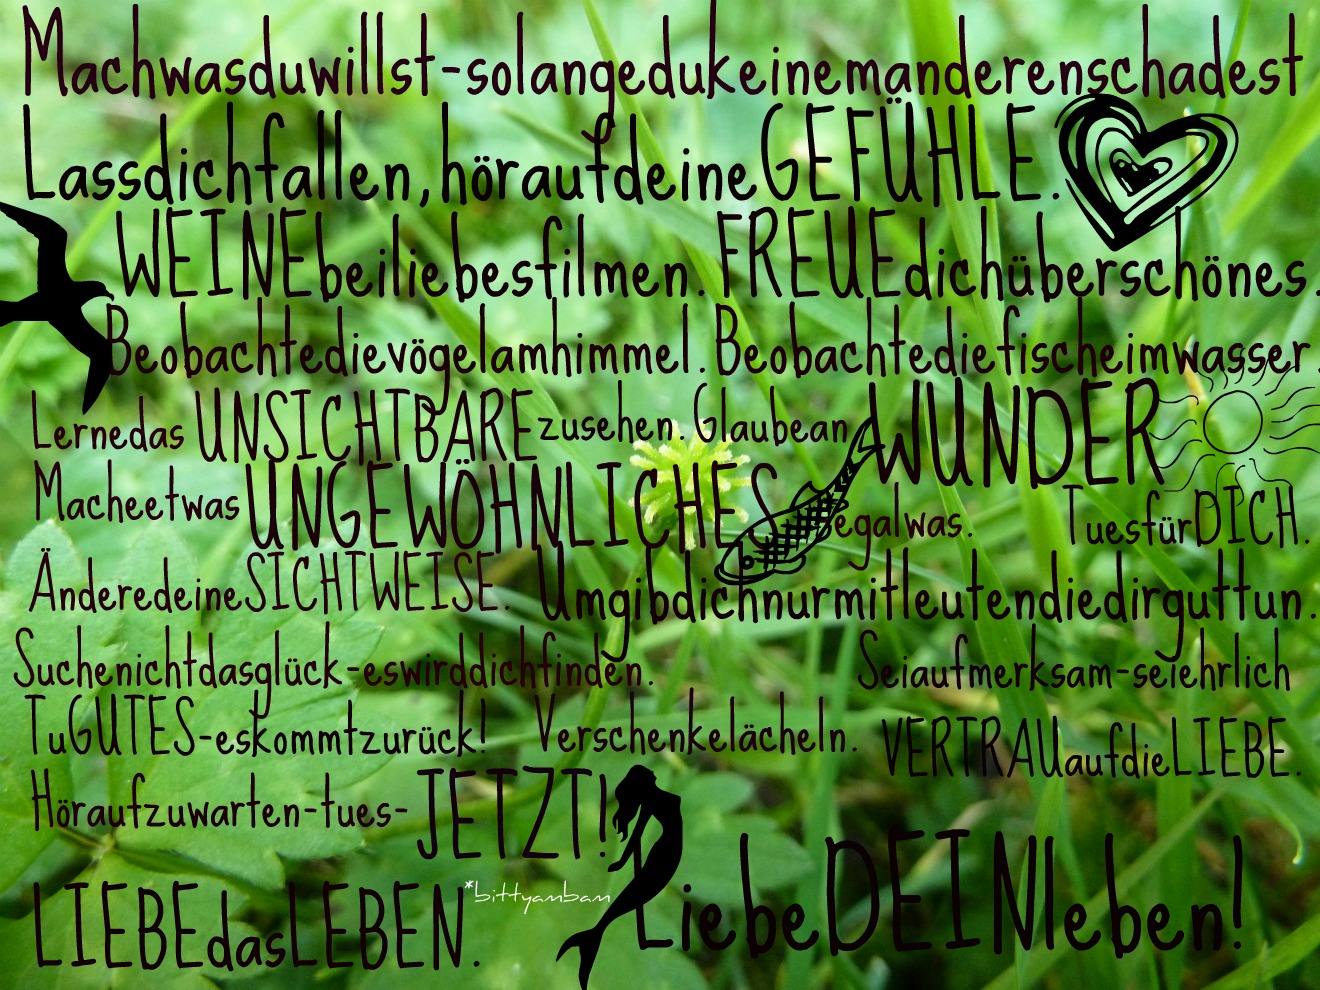 Machwasduwillst-solangedukeinemanderenschadest
Lassdichfallen,höraufdeineGEFÜHLE.
WEINEbeiliebesfilmen. FREUEdichüberschönes.
Beobachtedievögelamhimmel. Beobachtediefischeimwasser.
Lernedas UNSICHTBARE zusehen. Glaubean WUNDER
Macheetwas UNGEWÖHNLICHES egalwas. TuesfürDICH.
ÄnderedeineSICHTWEISE. Umgibdichnurmitleutendiedirguttun.
Suchenichtdasglück-eswirddichfinden. Seiaufmerksam-seiehrlich
TuGUTES-eskommtzurück! Verschenkelächeln. VERTRAUaufdieLIEBE.
Höraufzuwarten-tues-JETZT!
LIEBEdasLEBEN. *bittyambam LiebeDEINleben!